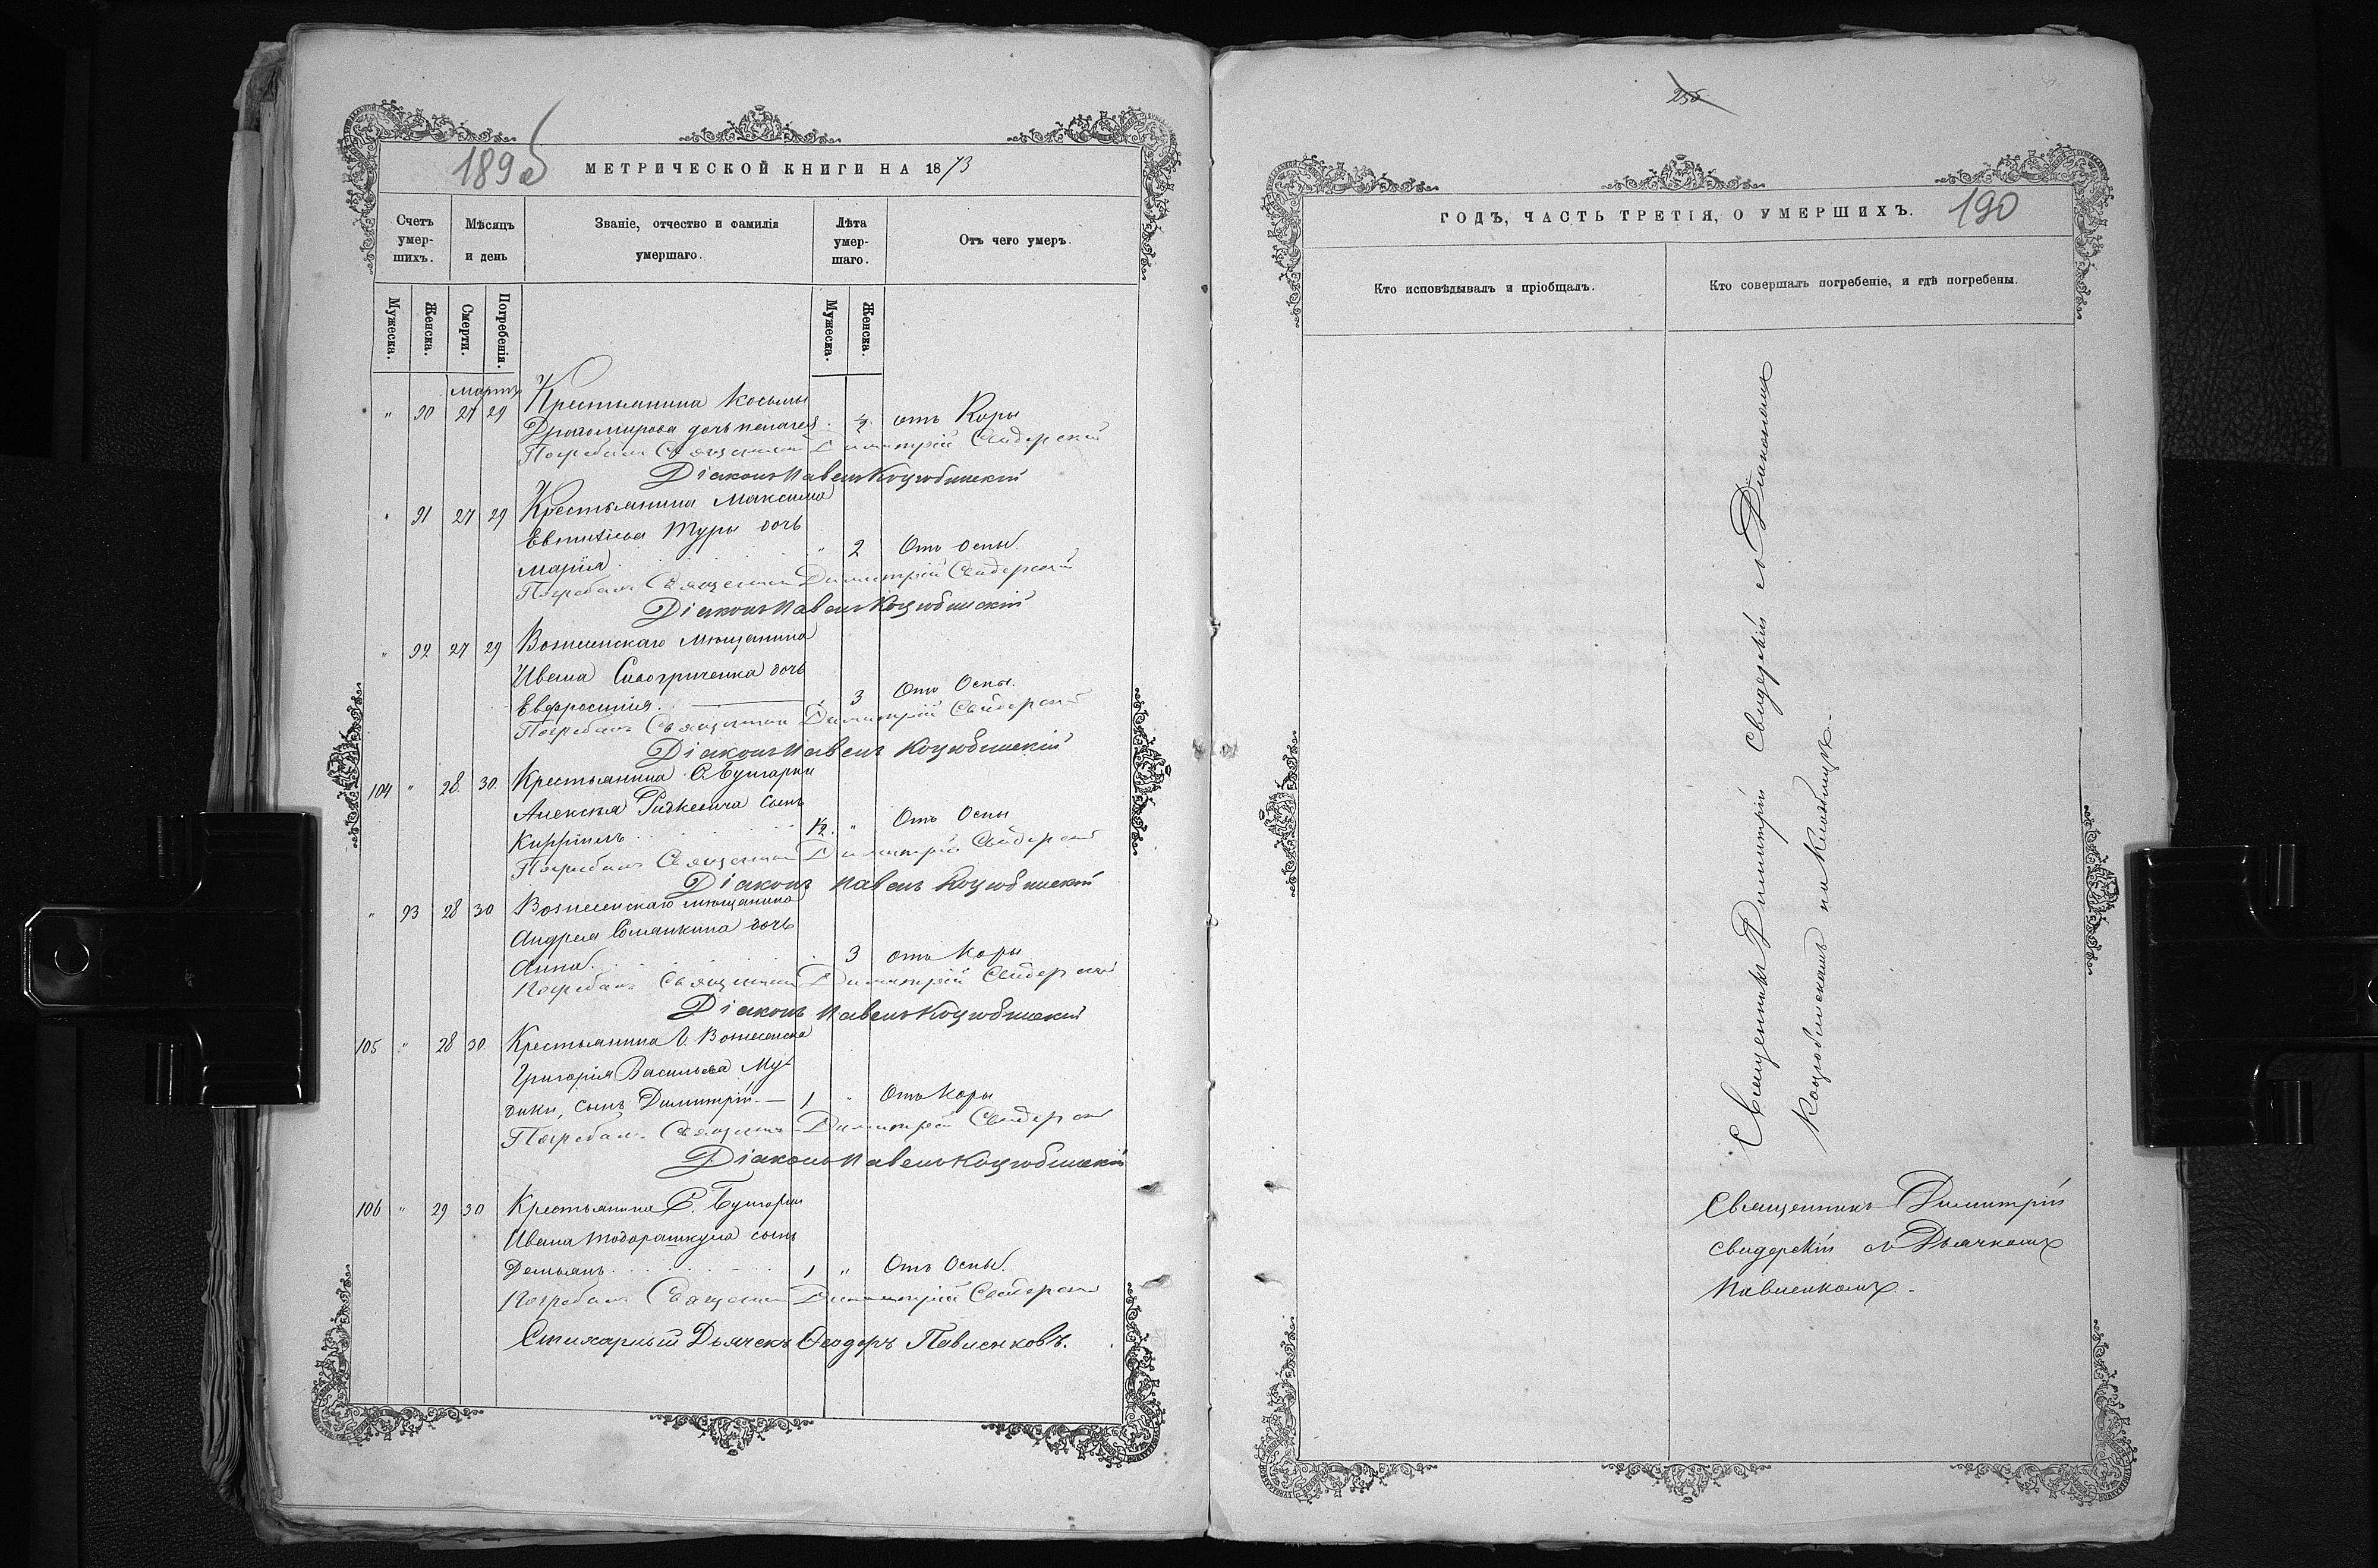 189 об
МЕТРИЧЕСКОЙ КНИГИ НА 1873
Счетъ умер-шихъ.
Мѣсяцъ и день
Званіе, отчество и фамилія умершаго.
Лѣта умер-шаго.
Отъ чего умеръ.
Мужеска.
Женска.
Смерти.
Погребенія.
Мужеска.
Женска.
Мартъ
" 90 27 29 Крестьянина Косьмы
Драгомирова дочь Пелагея отъ Коры
Погребалъ Священникъ Димитрій Свидерскій
Діаконъ Павелъ Коцюбинскій
" 91 27 29 Крестьянина Максима
Евтихіева Туры дочь
Марія " 2 Отъ оспы.
Погребалъ Священникъ Димитрій Свидерскій
Діаконъ Павелъ Коцюбинскій
" 92 27 29 Вознесенскаго мѣщанина
Ивана дочь
Евфросинія. 3 Отъ Оспы.
Погребалъ Священникъ Димитрій Свидерскій
Діаконъ Павелъ Коцюбинскій
104 " 28 30 Крестьянина С. Булгарки
Алексѣя Радкевича сынъ
Кириллъ " Отъ Оспы
Погребалъ Священникъ Димитрій Свидерскій
Діаконъ Павелъ Коцюбинскій
" 93 28 30 Вознесенскаго мѣщанина
Андрея дочь
Анна. 3 отъ Коры
Погребалъ Священникъ Димитрій Свидерскій
Діаконъ Павелъ Коцюбинскій
105 " 28 30 Крестьянина Г. Вознесенска
Григорія Васильева Му-
дики, сынъ Димитрій. — 1 " Отъ Коры
Погребалъ Священникъ Димитрій Свидерскій
Діаконъ Павелъ Коцюбинскій
106 " 29 30 Крестьянина С. Булгарки
Ивана Тодорашкула сынъ
Демьянъ 1 " Отъ Оспы.
Погребалъ Священникъ Димитрій Свидерскій
Стихарный Дьячекъ Ѳеодоръ Павленковъ.
256
ГОДЪ, ЧАСТЬ ТРЕТІЯ, О УМЕРШИХЪ.
190
Кто исповѣдывалъ и пріобщалъ.
Кто совершалъ погребеніе, и гдѣ погребены.
Священникъ Димитрій Свидерскій съ Діакономъ
Коцюбинскимъ на Кладбищѣ.
Священникъ Димитрій
Свидерскій съ Дьячкомъ
Павленкомъ.